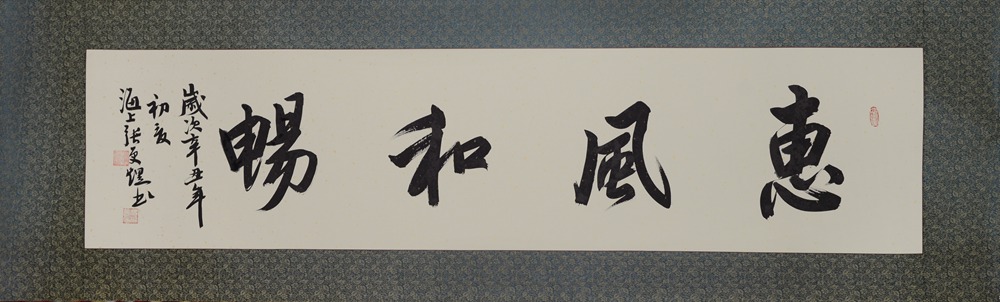 惠風和暢
歲次辛丑年
初夏
海上張更煜書